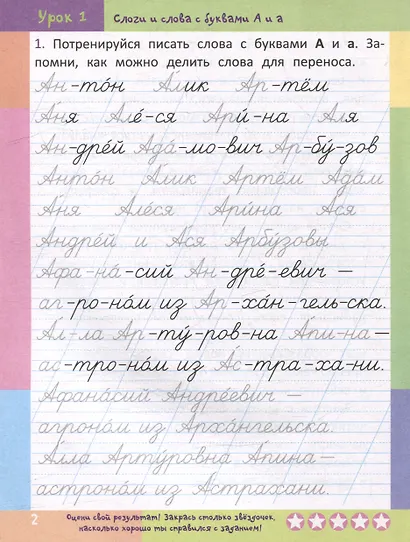 Урок 1 Слоги и слова с буквами А и а
1. Потренируйся писать слова с буквами А и а. За-
помни, как можно делить слова для переноса.
Ан-то́н А́лик Ар-тём
А́ня Але́-ся Ари́-на А́ля
Ан-дре́й Ада́-мо-вич Ар-бу́-зов
Анто́н А́лик Артём Ада́м
А́ня Але́ся Ари́на А́ся
Андре́й и А́ся Арбу́зовы
Афа-на́-сий Ан-дре́-евич —
аг-ро-но́м из Ар-ха́н-гель-ска.
А́л-ла Ар-ту́-ров-на А́пи-на—
ас-тро-но́м из А́с-тра-ха-ни.
Афана́сий Андре́евич —
агроно́м из Арха́нгельска.
А́лла Арту́ровна А́пина—
астроно́м из А́страхани.
2 Оцени свой результат! Закрась столько звёздочек,
насколько хорошо ты справился с заданием!